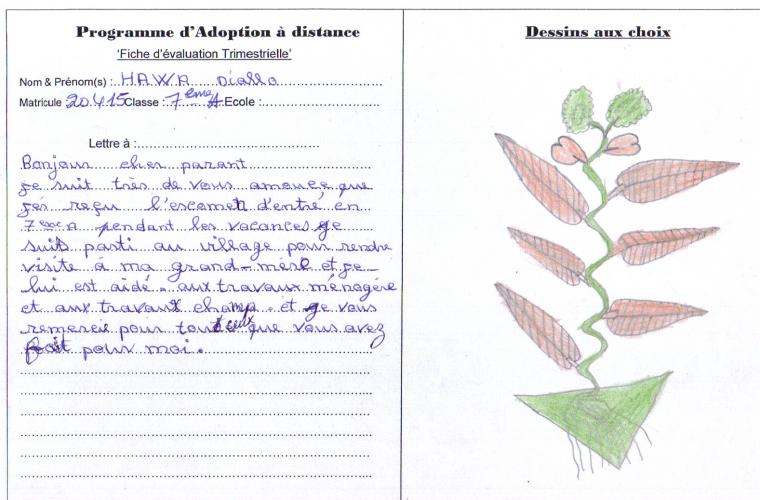 Programme d'Adoption à distance
'Fiche d'évaluation Trimestrielle'
Nom & Prénom(s) : HAWA Diallo
Matricule 20.415 Classe : 7ème A Ecole :
Lettre à :
Bonjour cher parant
je suit très de vous amouce que
jes reçu l'escamen d'entré en
7ème A pendant les vacances je
suit parti au village pour rendre
visite à ma grand-mère et je
lui est aidé. aux travaux ménagère
et aux travaux champ. et je vous
remercie pour tout ceux que vous avez
fait pour moi.
Dessins aux choix